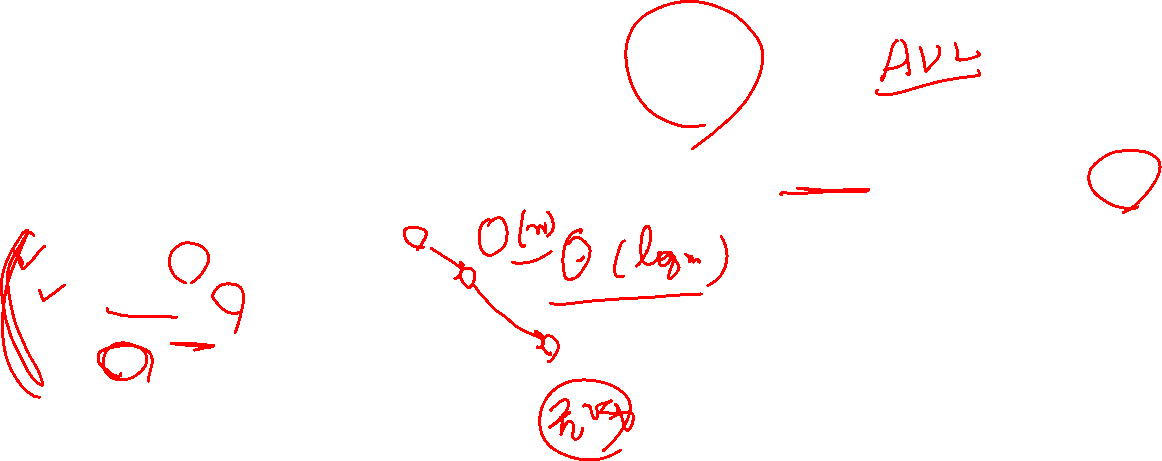 AVL
O(n) θ(log n)